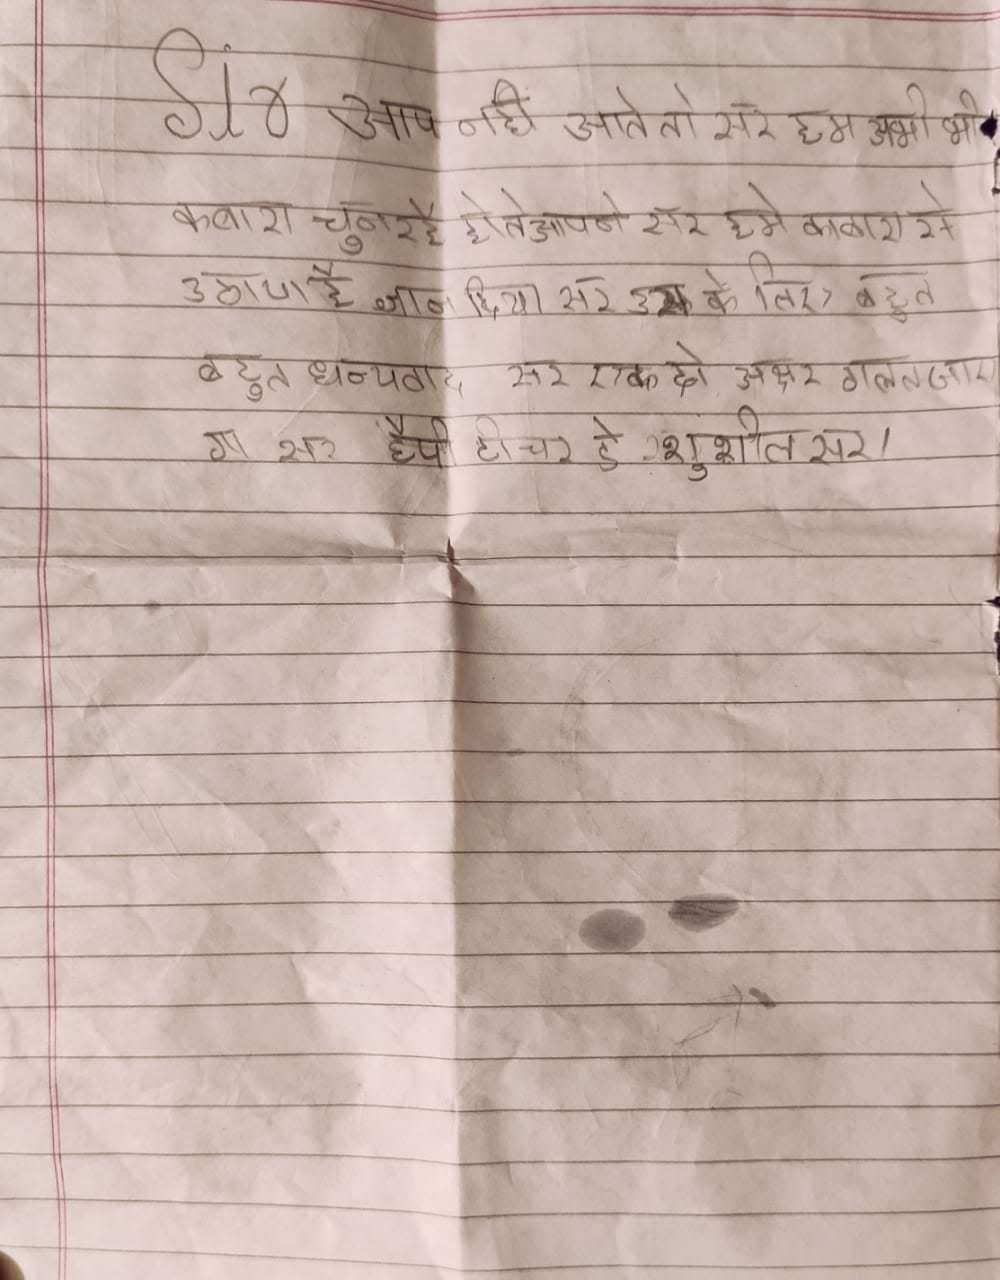 Sir आप नही आते तो सर हम अभी भी
कबारा चुन रहै होते आपने सर हमे काबारा से
उठाया है ज्ञान दिया सर उस के लिए बहुत
बहुत धन्यवाद सर एक दो अक्षर गलत जाए
गा सर हैपी टीचर डे शुशील सर।